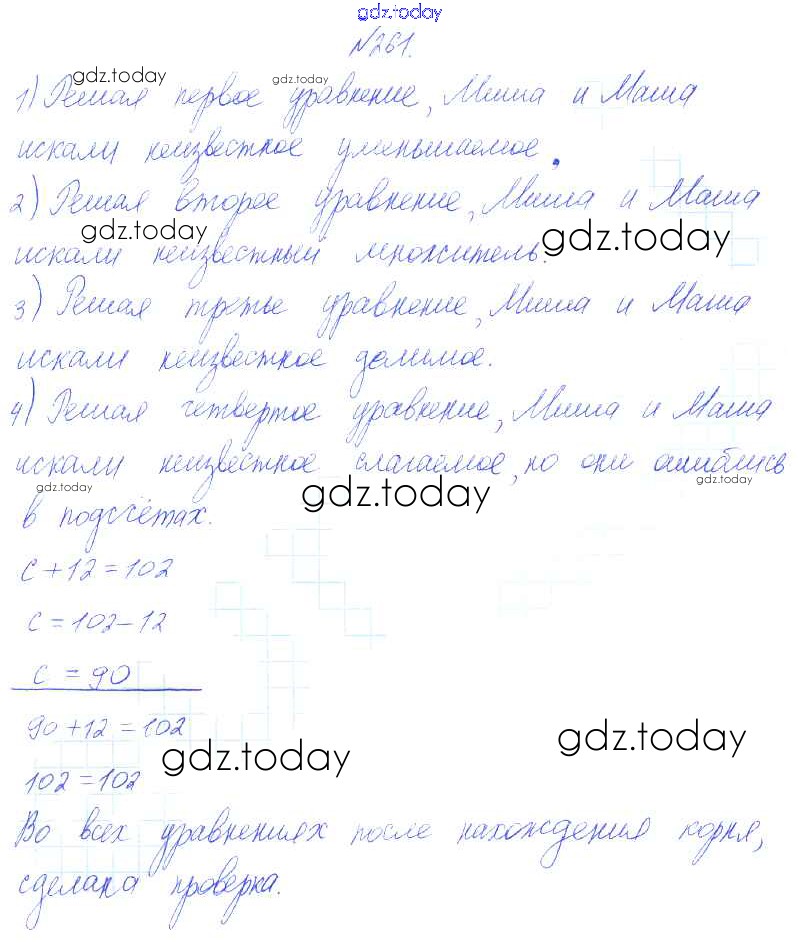 gdz.today
№261.
gdz.today gdz.today
1) Решая первое уравнение, Миша и Маша
искали неизвестное уменьшаемое.
2) Решая второе уравнение, Миша и Маша
gdz.today gdz.today
искали неизвестный множитель.
3) Решая третье уравнение, Миша и Маша
искали неизвестное делимое.
4) Решая четвертое уравнение, Миша и Маша
искали неизвестное слагаемое, но они ошиблись
gdz.today gdz.today gdz.today
в подсчётах.
c + 12 = 102
c = 102 - 12
c = 90
90 + 12 = 102
gdz.today gdz.today
102 = 102
Во всех уравнениях после нахождения корня,
сделана проверка.